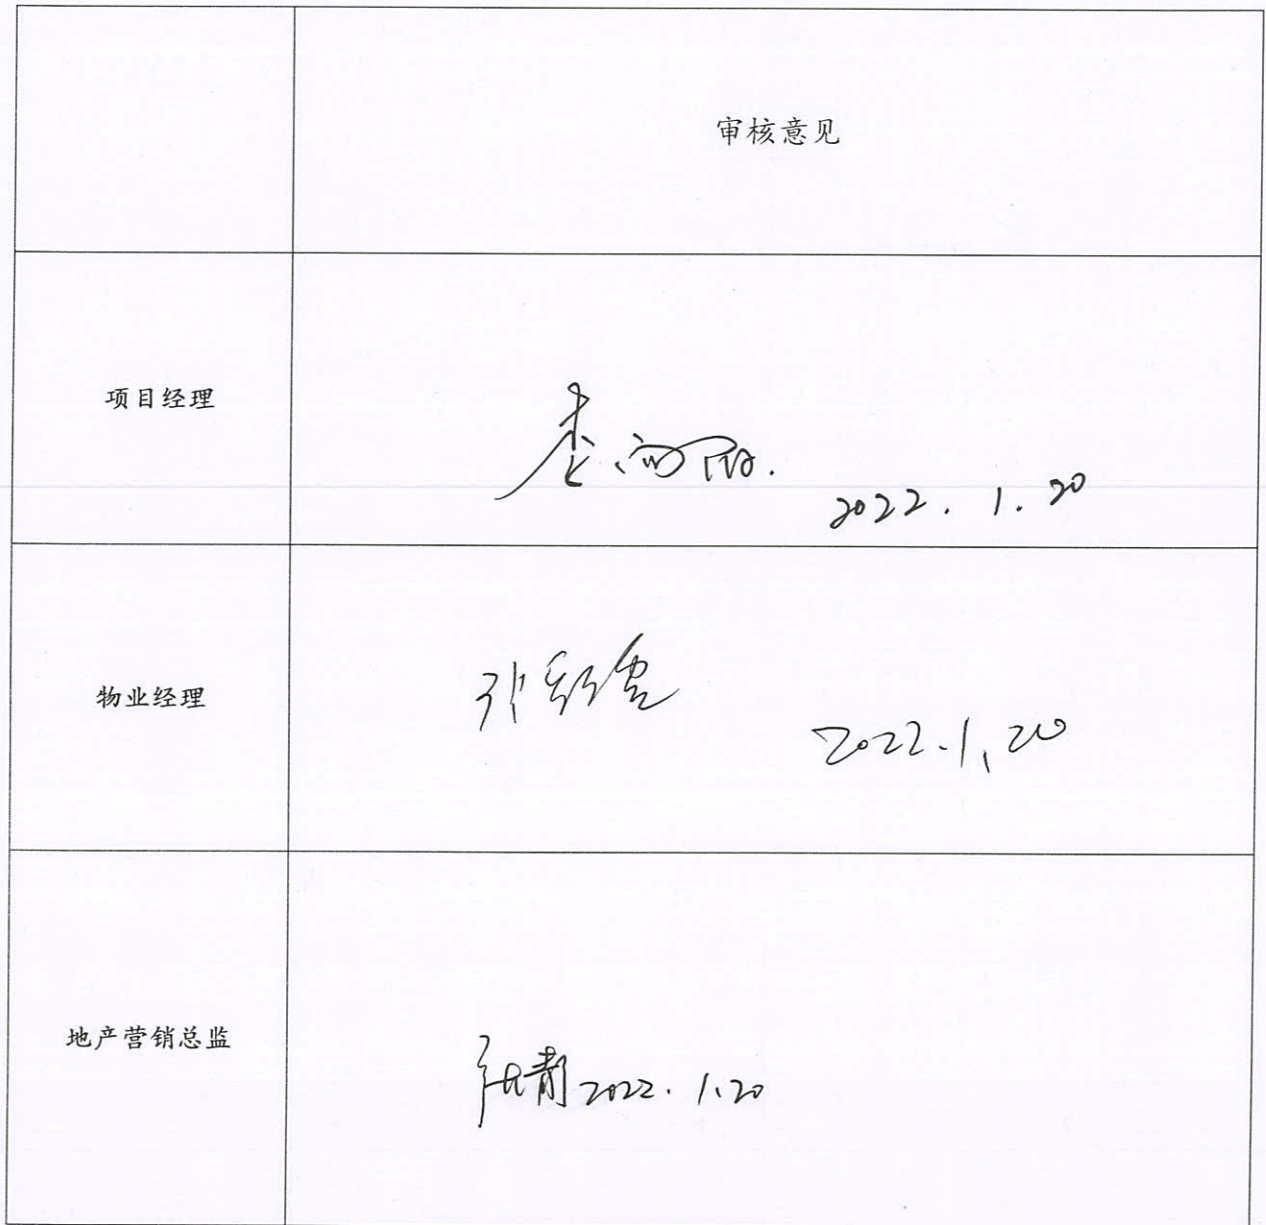 审核意见
项目经理
2022.1.20
物业经理
2022.1.20
地产营销总监
2022.1.20